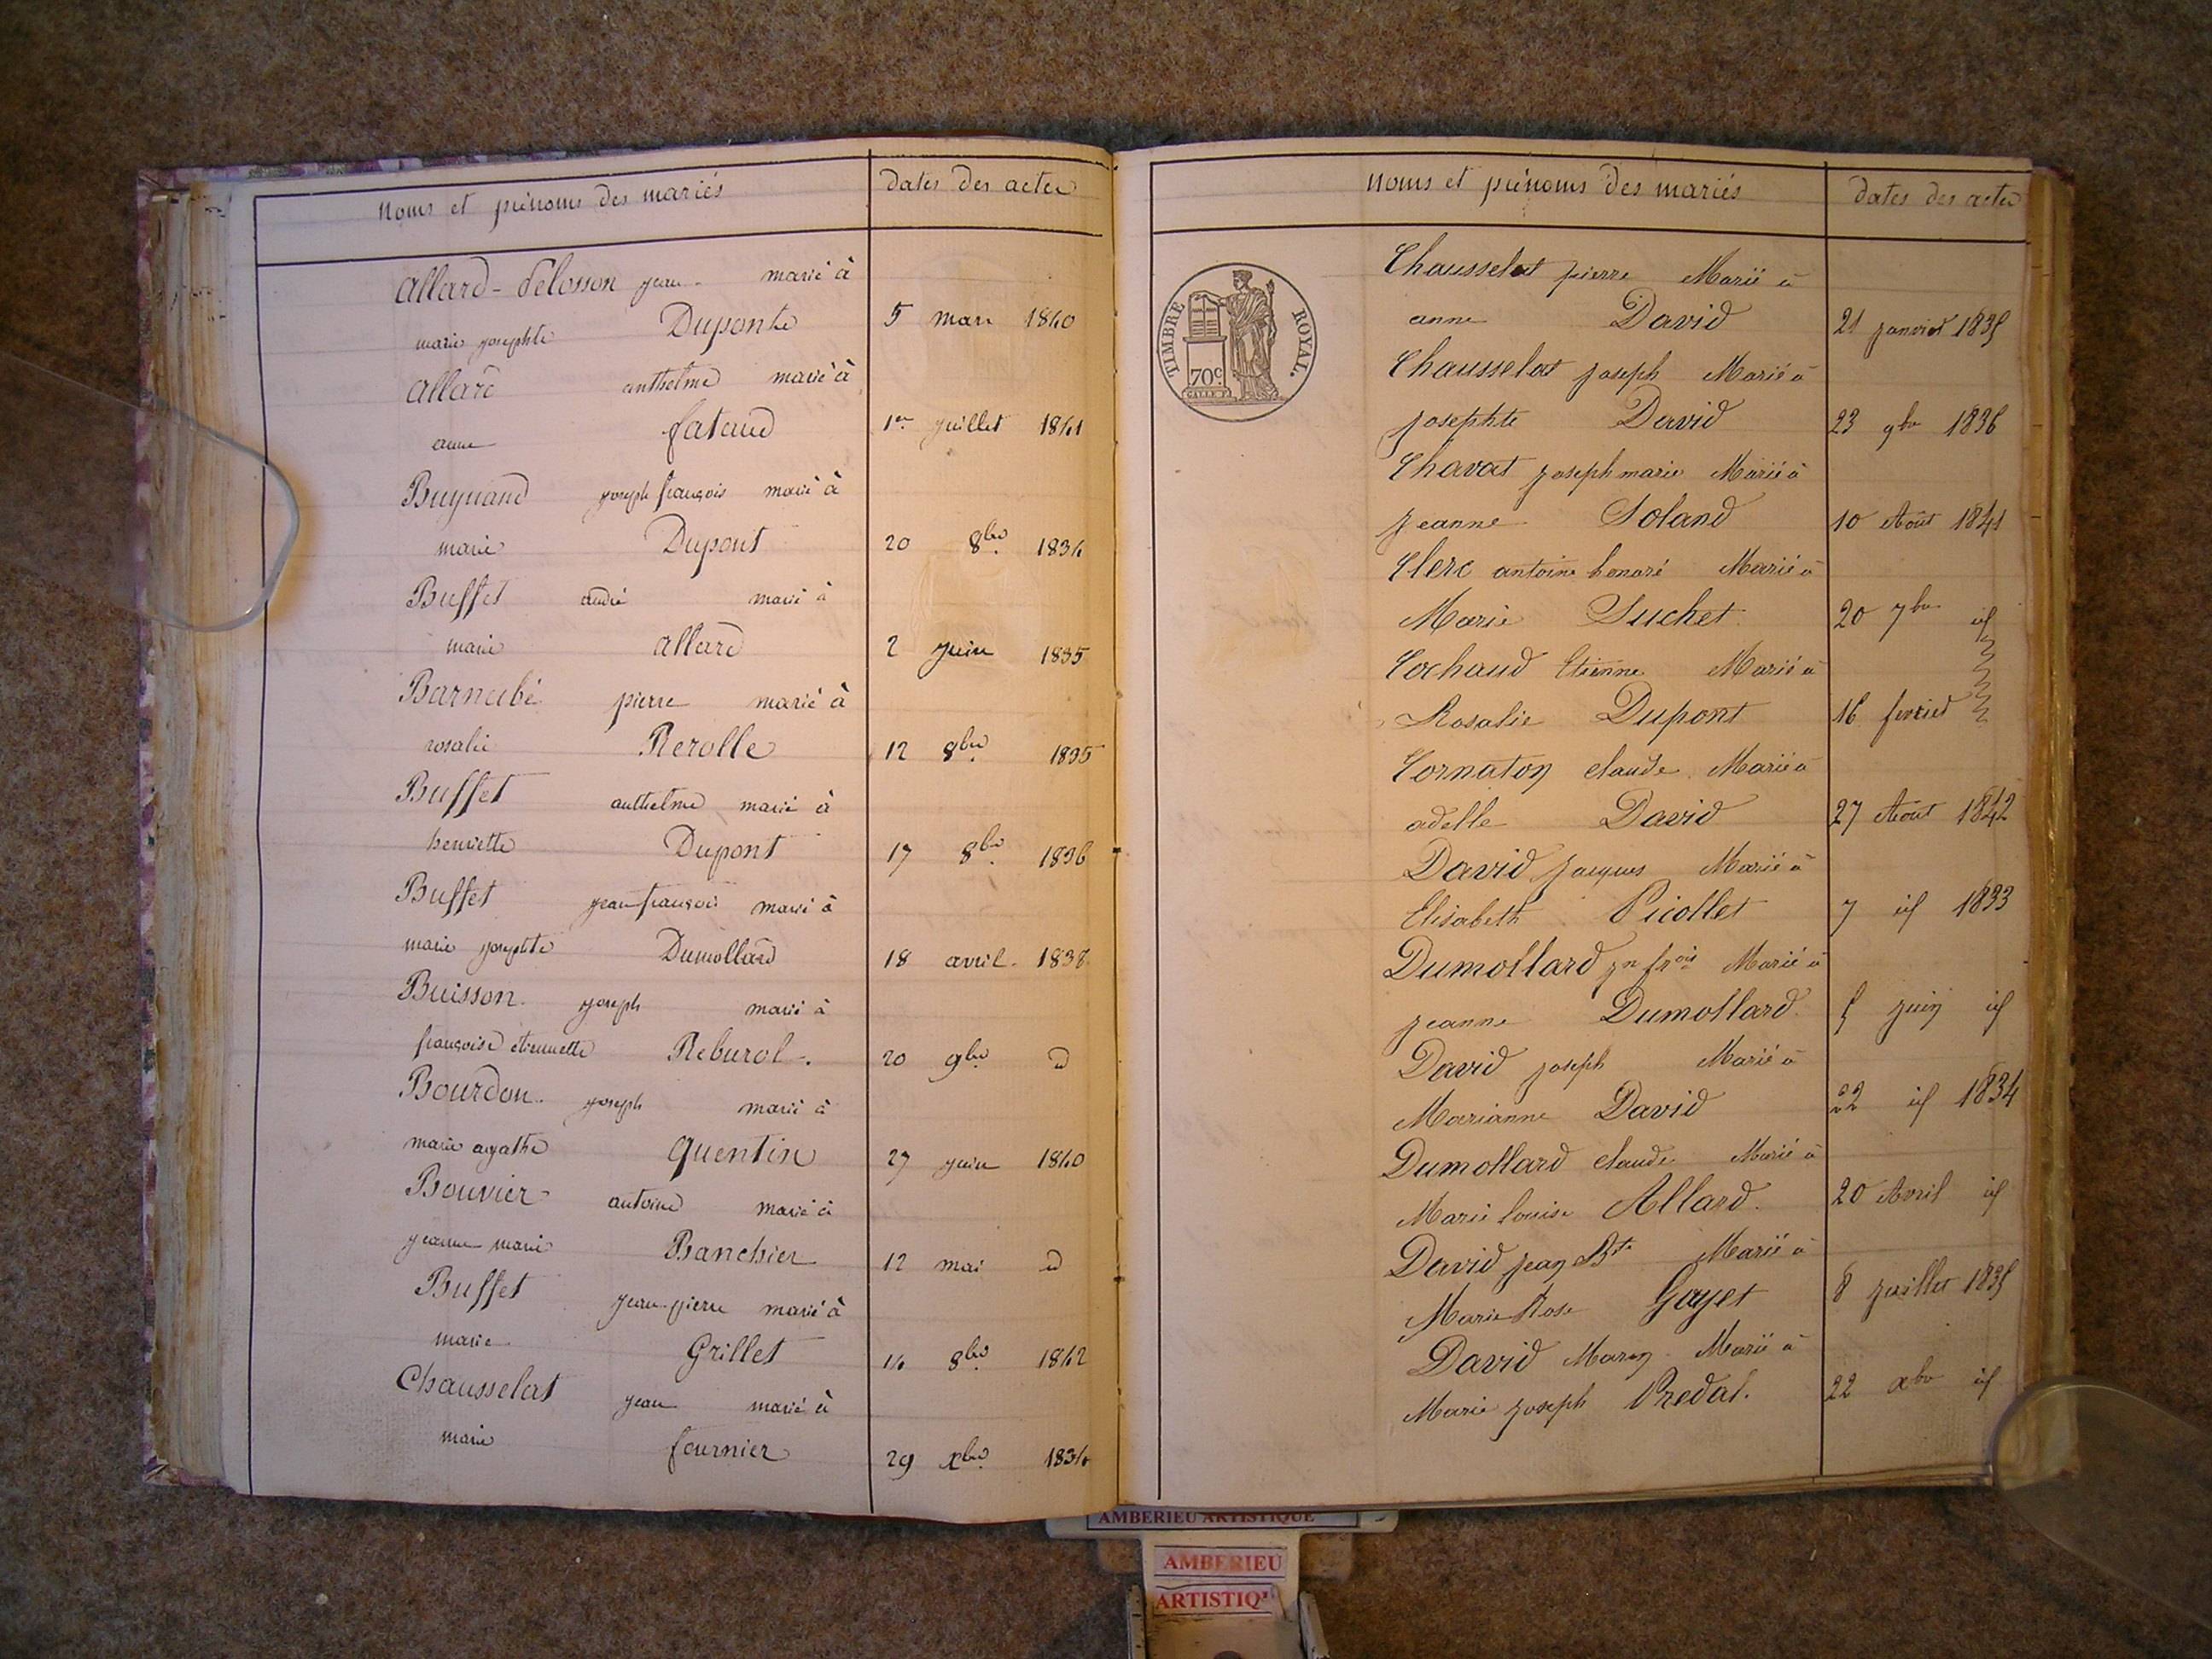 Noms et prénoms des mariés dates des actes
Allard-Delosson jean marié à
marie josephte Duponte 5 mars 1840
Allard anthelme marié à
anne fataud 1er juillet 1841
Buynand joseph françois marié à
marie Dupont 20 8bre 1834
Buffet andré marié à
marie Allard 2 juin 1835
Barnabé pierre marié à
rosalie Rerolle 12 8bre 1835
Buffet anthelme marié à
henriette Dupont 17 8bre 1836
Buffet jean françois marié à
marie josephte Dumollard 18 avril 1838
Buisson joseph marié à
françoise etiennette Reburol 20 9bre d
Bourdon joseph marié à
marie agathe Quentin 27 juin 1840
Bouvier antoine marié à
jeanne marie Banchier 12 mai d
Buffet jean-pierre marié à
marie Grillet 14 8bre 1842
Chausselat jean marié à
marie fournier 29 xbre 1834
Noms et prénoms des mariés dates des actes
TIMBRE ROYAL.
70c.
Chausselat pierre Marié à
anne David 21 janvier 1835
Chausselat joseph Marié à
josephte David 23 9bre 1836
Chavat joseph marie Marié à
jeanne Soland 10 Août 1841
Clerc antoine honoré Marié à
Marie Suchet 20 7bre id
Cochaud Etienne Marié à
Rosalie Dupont 16 fevrier
Cornaton claude Marié à
adelle David 27 Août 1842
David jacques Marié à
Elisabeth Picollet 7 id 1833
Dumollard jn frois Marié à
jeanne Dumollard 5 juin id
David joseph Marié à
Marianne David 22 id 1834
Dumollard claude Marié à
Marie louise Allard. 20 Avril id
David jean Bte Marié à
Marie Rose Goyet 8 juillet 1835
David Marin Marié à
Marie joseph Predal. 22 xbre id
AMBERIEU ARTISTIQUE
AMBERIEU
ARTISTIQ